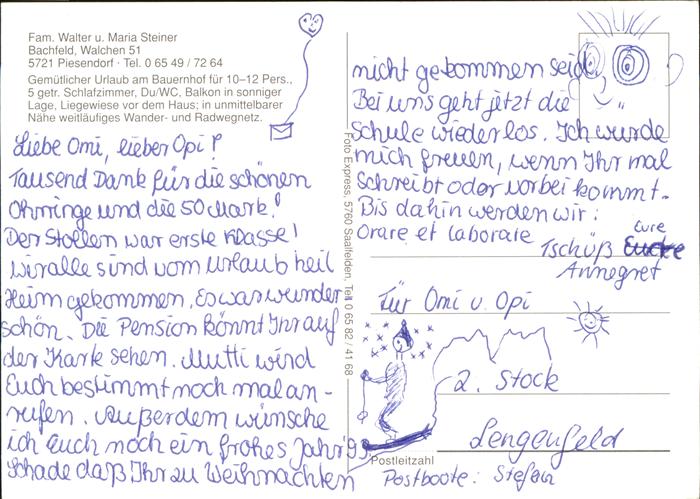 Fam. Walter u. Maria Steiner
Bachfeld, Walchen 51
5721 Piesendorf · Tel. 0 65 49 / 72 64
Gemütlicher Urlaub am Bauernhof für 10–12 Pers.,
5 getr. Schlafzimmer, Du/WC, Balkon in sonniger
Lage, Liegewiese vor dem Haus; in unmittelbarer
Nähe weitläufiges Wander- und Radwegnetz.
Liebe Omi, lieber Opi!
Tausend Dank für die schönen
Ohrringe und die 50 Mark!
Der Stollen war erste Klasse!
Wir alle sind vom Urlaub heil
Heim gekommen. Es war wunder-
schön. Die Pension könnt Ihr auf
der Karte sehen. Mutti wird
Euch bestimmt noch mal an-
rufen. Außerdem wünsche
ich Euch noch ein frohes Jahr '93
Schade daß Ihr zu Weihnachten
Foto Express, 5760 Saalfelden, Tel. 0 65 82 / 41 68
nicht gekommen seid.
Bei uns geht jetzt die
Schule wieder los. Ich würde
mich freuen, wenn Ihr mal
schreibt oder vorbei kommt.
Bis dahin werden wir:
Orare et laborare
Tschüß Eure
Annegret
Für Omi u. Opi
2. Stock
Lengenfeld
Postleitzahl
Postbote: Stefan